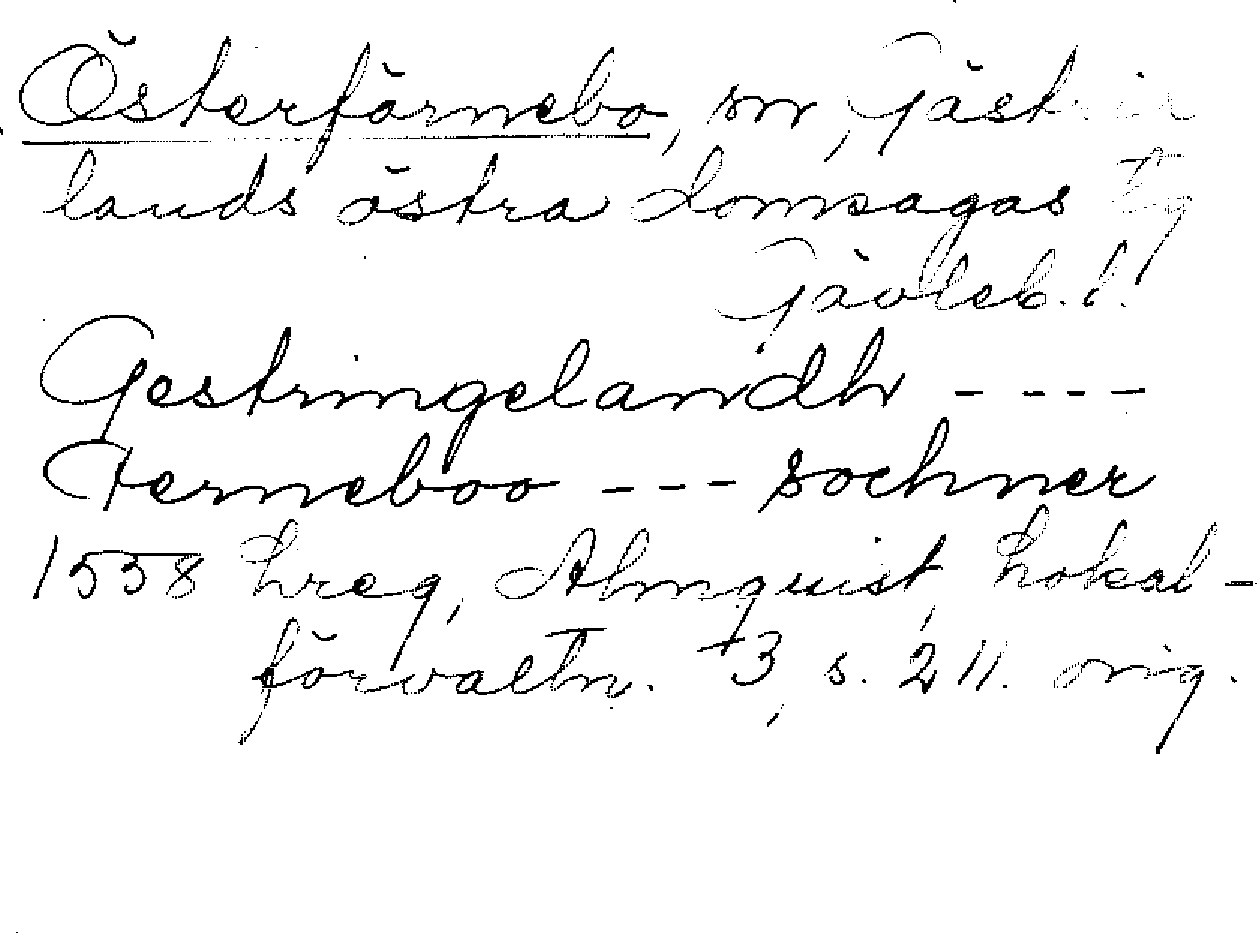 Österfärnebo, sn, Gästrik
lands östra domsagas tg
Gävleb. l.
Gestringelandh ----
Ferneboo --- sochner
1558 Lreg, Almquist, Lokal-
förvaltn. 3, s. 211. orig.